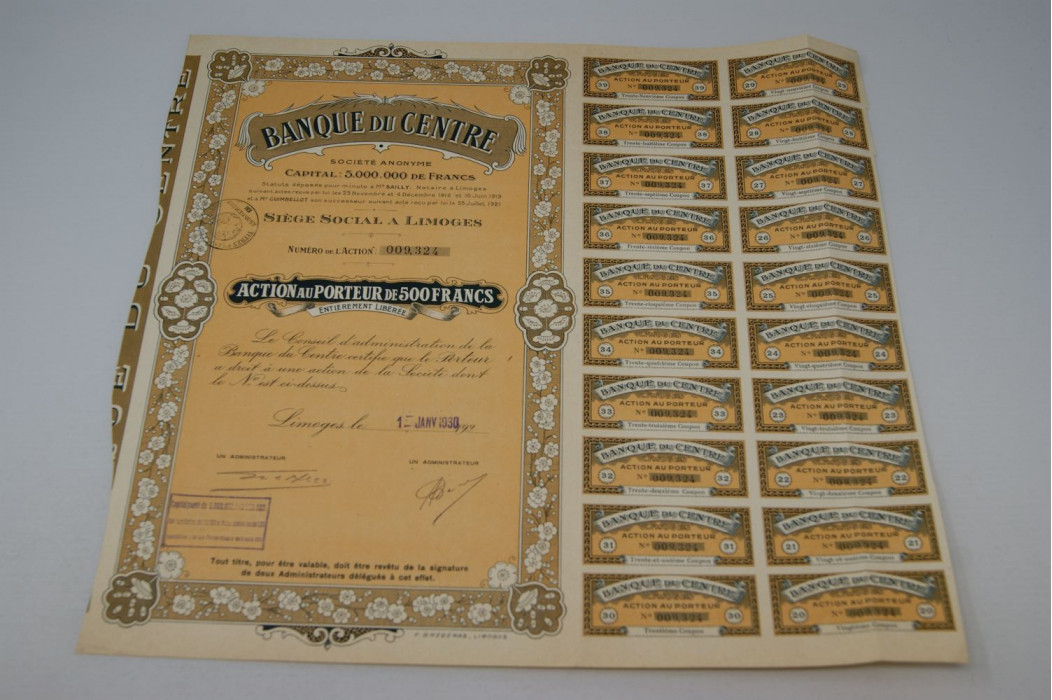 BANQUE DU CENTRE
BANQUE DU CENTRE
SOCIÉTÉ ANONYME
CAPITAL: 5.000.000 DE FRANCS
Statuts déposés pour minute à Me BAILLY, Notaire à Limoges
suivant actes reçus par lui les 23 Novembre et 4 Décembre 1918 et 16 Juin 1919
et à Me GUIMBELLOT son successeur suivant acte reçu par lui le 25 Juillet 1921
SIÈGE SOCIAL A LIMOGES
NUMÉRO DE L'ACTION: 009,324
ACTION AU PORTEUR DE 500 FRANCS
ENTIÈREMENT LIBÉRÉE
Le Conseil d'administration de la
Banque du Centre certifie que le Porteur
a droit à une action de la Société dont
le No est ci-dessus
Limoges le 15 JANV 1930 192
UN ADMINISTRATEUR
UN ADMINISTRATEUR
Tout titre, pour être valable, doit être revêtu de la signature
de deux Administrateurs délégués à cet effet.
LIMOGES
BANQUE DU CENTRE
ACTION AU PORTEUR
39 No 009,324 39
Trente-neuvième Coupon
BANQUE DU CENTRE
ACTION AU PORTEUR
29 No 009,324 29
Vingt-neuvième Coupon
BANQUE DU CENTRE
ACTION AU PORTEUR
38 No 009,324 38
Trente-huitième Coupon
BANQUE DU CENTRE
ACTION AU PORTEUR
28 No 009,324 28
Vingt-huitième Coupon
BANQUE DU CENTRE
ACTION AU PORTEUR
37 No 009,324 37
Trente-septième Coupon
BANQUE DU CENTRE
ACTION AU PORTEUR
27 No 009,324 27
Vingt-septième Coupon
BANQUE DU CENTRE
ACTION AU PORTEUR
36 No 009,324 36
Trente-sixième Coupon
BANQUE DU CENTRE
ACTION AU PORTEUR
26 No 009,324 26
Vingt-sixième Coupon
BANQUE DU CENTRE
ACTION AU PORTEUR
35 No 009,324 35
Trente-cinquième Coupon
BANQUE DU CENTRE
ACTION AU PORTEUR
25 No 009,324 25
Vingt-cinquième Coupon
BANQUE DU CENTRE
ACTION AU PORTEUR
34 No 009,324 34
Trente-quatrième Coupon
BANQUE DU CENTRE
ACTION AU PORTEUR
24 No 009,324 24
Vingt-quatrième Coupon
BANQUE DU CENTRE
ACTION AU PORTEUR
33 No 009,324 33
Trente-troisième Coupon
BANQUE DU CENTRE
ACTION AU PORTEUR
23 No 009,324 23
Vingt-troisième Coupon
BANQUE DU CENTRE
ACTION AU PORTEUR
32 No 009,324 32
Trente-deuxième Coupon
BANQUE DU CENTRE
ACTION AU PORTEUR
22 No 009,324 22
Vingt-deuxième Coupon
BANQUE DU CENTRE
ACTION AU PORTEUR
31 No 009,324 31
Trente-et-unième Coupon
BANQUE DU CENTRE
ACTION AU PORTEUR
21 No 009,324 21
Vingt-et-unième Coupon
BANQUE DU CENTRE
ACTION AU PORTEUR
30 No 009,324 30
Trentième Coupon
BANQUE DU CENTRE
ACTION AU PORTEUR
20 No 009,324 20
Vingtième Coupon